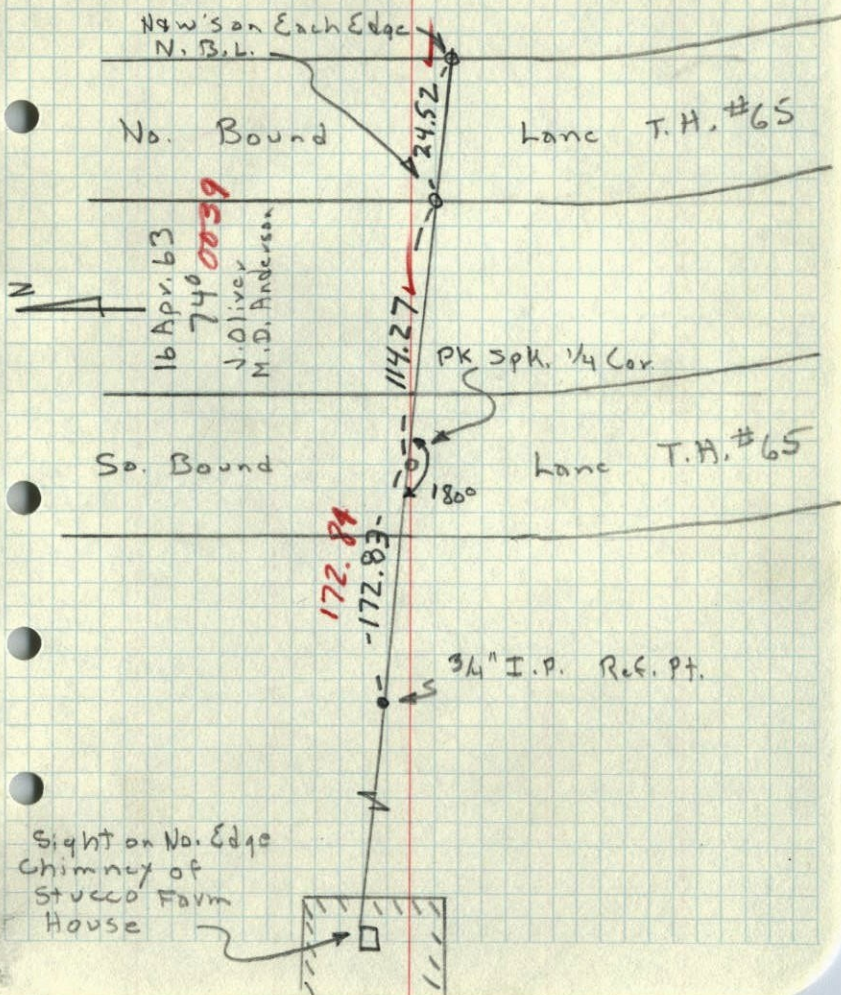 Naw's on Each Edge
N. B. L.
24.52
No. Bound Lane T.H. #65
N
16 Apr. 63
74° 0039
J. Oliver
M. D. Anderson
114.27
PK Spk. 1/4 Cor.
So. Bound Lane T.H. #65
180°
172.84
-172.83-
3/4" I.P. Ref. Pt.
Sight on No. Edge
Chimney of
Stucco Farm
House